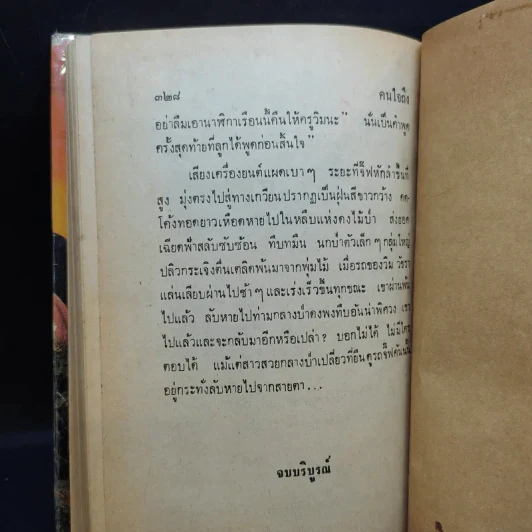 ๓๒๘ คนใจถึง
อย่าลืมเอานาฬิกาเรือนนี้คืนให้ครูวิมนะ” นั่นเป็นคำพูด
ครั้งสุดท้ายที่ลูกได้พูดก่อนสิ้นใจ”
เสียงเครื่องยนต์แผดเบาๆ ระยะที่จี๊ฟหักลำขึ้นที่
สูง มุ่งตรงไปสู่ทางเกวียนปรากฏเป็นฝุ่นสีขาวกว้าง คด-
โค้งทอดยาวเหยียดหายไปในหลืบแห่งดงไม้ป่า ส่งยอด
เฉียดฟ้าสลับซับซ้อน ทึบทมึน นกป่าตัวเล็กๆ กลุ่มใหญ่
ปลิวกระเจิงตื่นเตลิดพ้นมาจากพุ่มไม้ เมื่อรถของวิม วัชรา
แล่นเลียบผ่านไปช้าๆ และเร่งเร็วขึ้นทุกขณะ เขาผ่านพ้น
ไปแล้ว ลับหายไปท่ามกลางป่าดงพงทึบอันน่าพิศวง เขา
ไปแล้วและจะกลับมาอีกหรือเปล่า? บอกไม่ได้ ไม่มีใคร
ตอบได้ แม้แต่สาวสวยกลางป่าเปลี่ยวที่ยืนดูรถจี๊ฟคันนั้น
อยู่กระทั่งลับหายไปจากสายตา...
จบบริบูรณ์